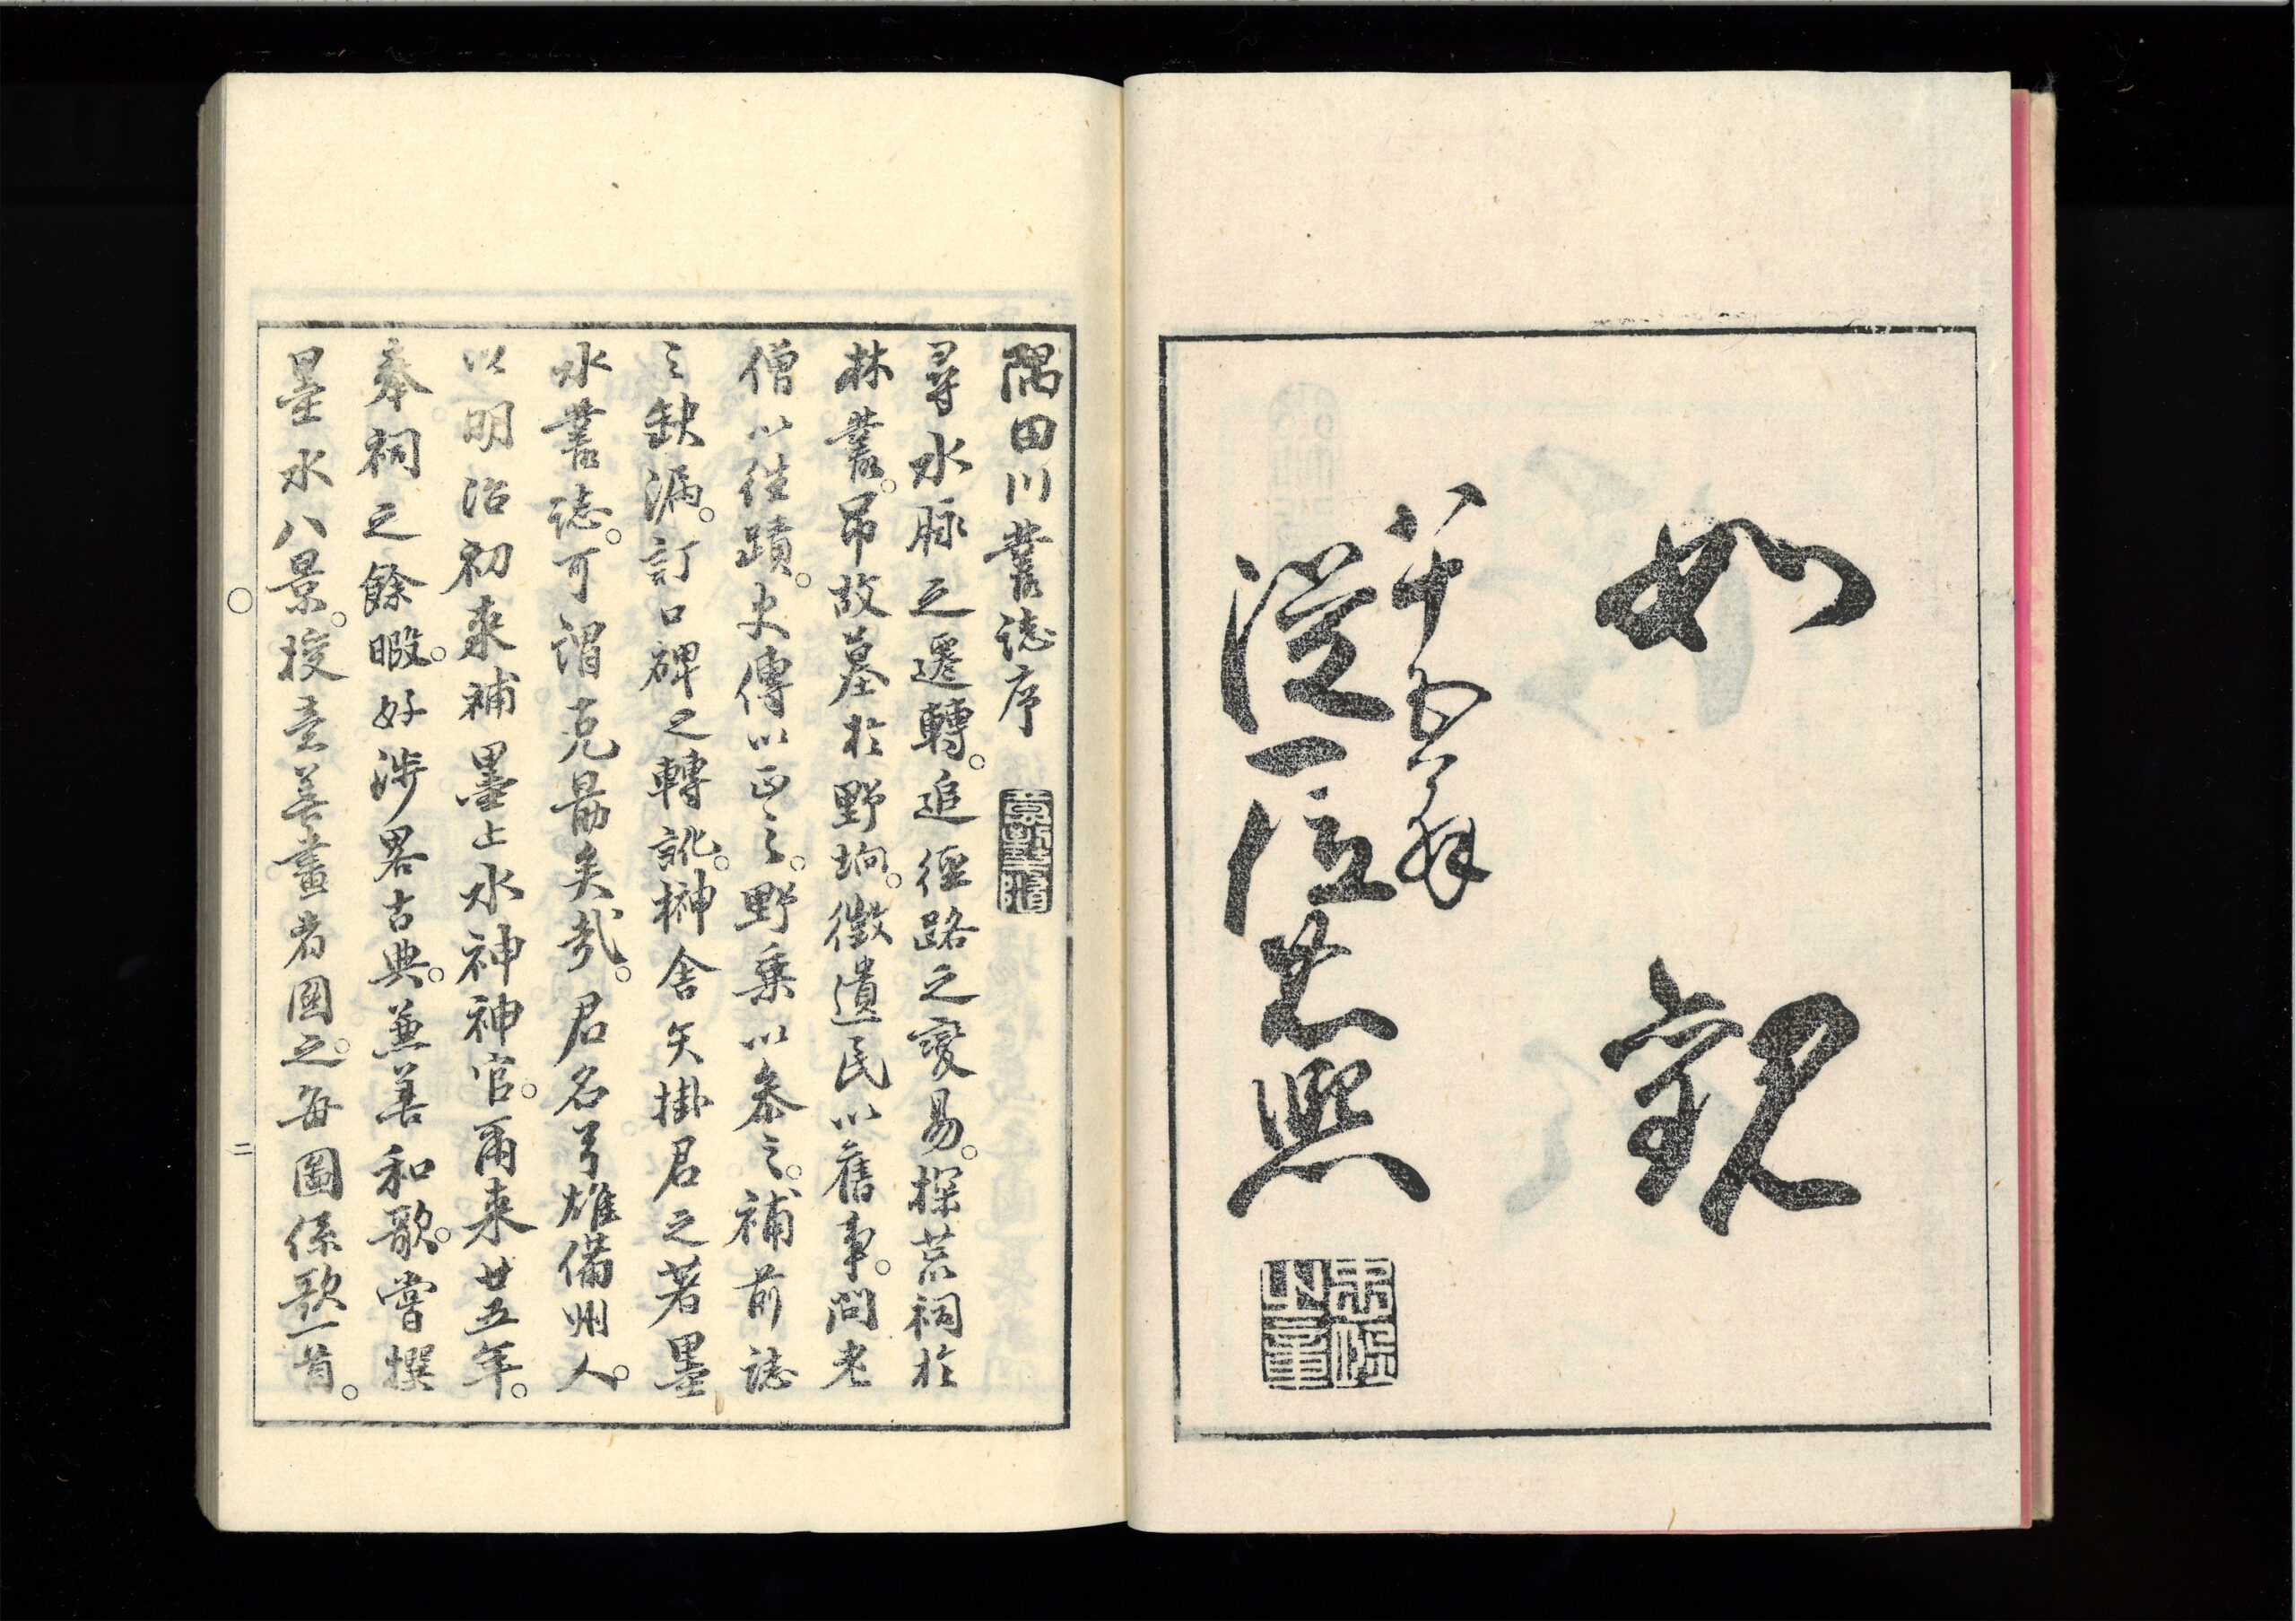 如觀
八十五翁
從一位基熙
隅田川叢誌序
尋水脉之遷轉。追徑路之變易。探荒祠於
林叢。吊故墓於野坰。徵遺民以舊事。問老
僧以往蹟。史傳以正之。野乗以参之。補前誌
之缺漏。訂口碑之轉訛。榊舎矢掛君之著墨
水叢誌。可謂克勗矣哉。君名弓雄備州人。
以明治初来補墨上水神神官。爾来廿五年。
奉祠之餘暇。好渉畧古典。兼善和歌。嘗撰
墨水八景。授壹善畫者圖之。毎圖係歌一首。
二